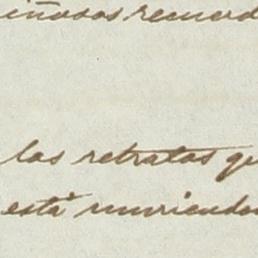 iñosos recuerd
los retratos qu
está muriendo